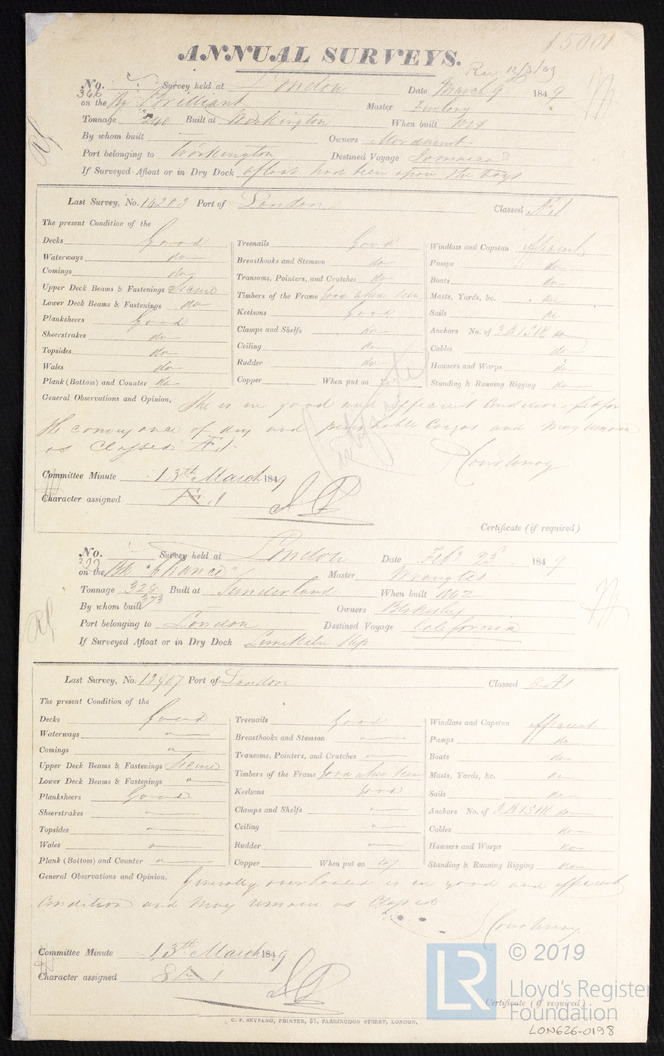 15001
ANNUAL SURVEYS.
Rec 12/3/49
No. 346 Survey held at London Date March 9 1849
on the Bg Brilliant Master
Tonnage 240 Built at Workington When built
By whom built — Owners Mordaunt
Port belonging to Workington Destined Voyage
If Surveyed Afloat or in Dry Dock afloat had been upon the
Last Survey, No. 14203 Port of London Classed Æ 1
The present Condition of the
Decks Good Treenails Good Windlass and Capstan
Waterways do Breasthooks and Stemson do Pumps do
Comings do Transoms, Pointers, and Crutches do Boats do
Upper Deck Beams & Fastenings Same Timbers of the Frame Good when seen Masts, Yards, &c. do
Lower Deck Beams & Fastenings do Keelsons Good Sails do
Planksheers Good Clamps and Shelfs do Anchors No. of 3 B 1 S 1 K do
Sheerstrakes do Ceiling do Cables do
Topsides do Rudder do Hawsers and Warps do
Wales do Copper When put on Standing & Running Rigging do
Plank (Bottom) and Counter do
General Observations and Opinion, She is in good and efficient Condition fit for
the conveyance of dry and perishable Cargos and may remain
as Classed Æ 1
Courtenay
Committee Minute 13th March 1849
Character assigned Æ 1
Certificate (if required)
No. Survey held at London Date Feby 23d 1849
on the Bk "Chance" Master
Tonnage 326 323 Built at Sunderland When built
By whom built Owners
Port belonging to London Destined Voyage California
If Surveyed Afloat or in Dry Dock Limekiln Slip
Last Survey, No. 13907 Port of London Classed
The present Condition of the
Decks Good Treenails Good Windlass and Capstan efficient
Waterways " Breasthooks and Stemson — Pumps do
Comings " Transoms, Pointers, and Crutches — Boats do
Upper Deck Beams & Fastenings Same Timbers of the Frame Good when seen Masts, Yards, &c. do
Lower Deck Beams & Fastenings " Keelsons Good Sails do
Planksheers Good Clamps and Shelfs — Anchors No. of 3 B 1 S 1 K do
Sheerstrakes — Ceiling — Cables do
Topsides — Rudder — Hawsers and Warps do
Wales — Copper When put on 47 Standing & Running Rigging do
Plank (Bottom) and Counter —
General Observations and Opinion, Generally overhauled is in good and efficient
Condition and may remain as Classed
Courtenay
Committee Minute 13th March 1849
Character assigned
Certificate (if required)
C. F. SEYFANG, PRINTER, 57, FARRINGDON STREET, LONDON.
LR © 2019
Lloyd's Register
Foundation
LON626-0198